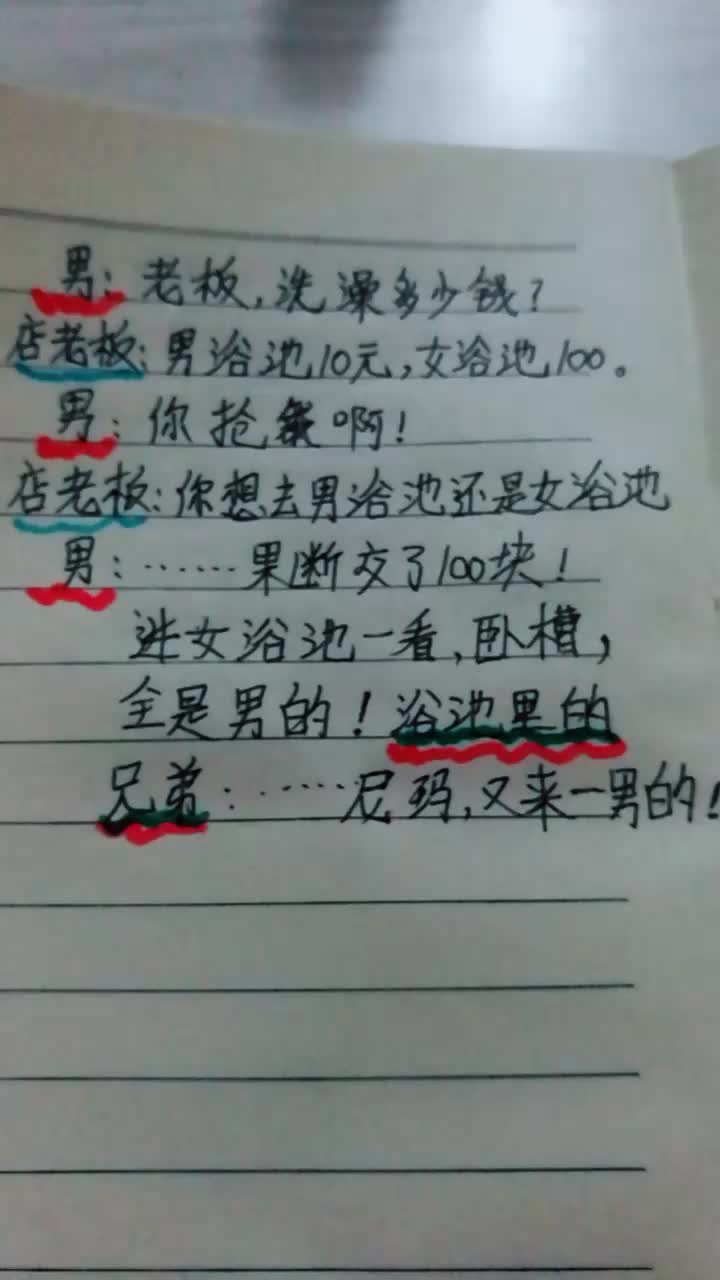 男：老板，洗澡多少钱？
店老板：男浴池10元，女浴池100。
男：你抢钱啊！
店老板：你想去男浴池还是女浴池
男：……果断交了100块！
进女浴池一看，卧槽，
全是男的！浴池里的
兄弟：……尼玛，又来一男的！